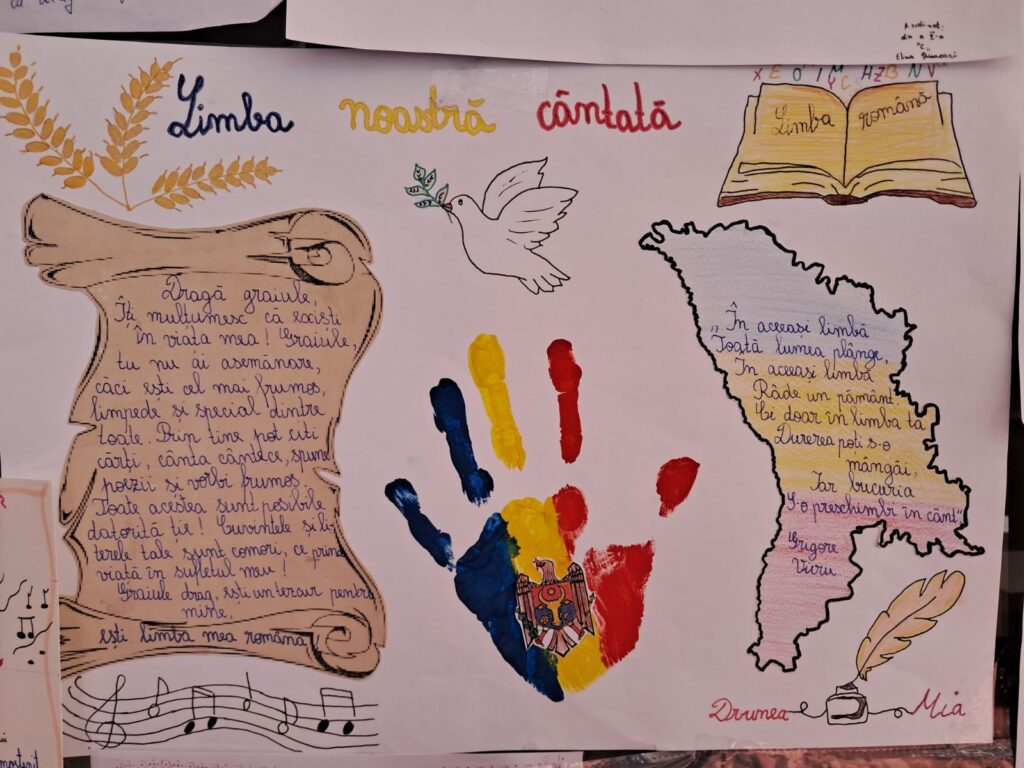 A realizat:
din a V-a
"C"
Limba noastră cântată
X E O I M Y C H Z B N V
Limba română
Dragă graiule,
Îți mulțumesc că existi
în viața mea! Graiule,
tu nu ai asemănare,
căci ești cel mai frumos,
limpede și special dintre
toate. Prin tine pot citi
cărți, cânta cântece, spune
poezii și vorbi frumos.
Toate acestea sunt posibile
datorită ție! Cuvintele și li
terele tale sunt comori, ce prind
viață în sufletul meu!
Graiule drag, ești un tezaur pentru
mine,
ești limba mea română
„În aceeași limbă
Toată lumea plânge,
În aceeași limbă
Râde un pământ.
Ci doar în limba ta
Durerea poți s-o
mângâi,
Iar bucuria
S-o preschimbi în cânt"
Grigore
Vieru
Drumea Mia